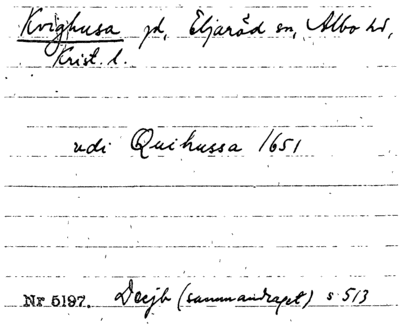 Kvighusa gd, Eljaröd sn, Albo hd,
Krist. l.
udi Quihussa 1651
Nr 5197. Decjb (sammandraget) s 513